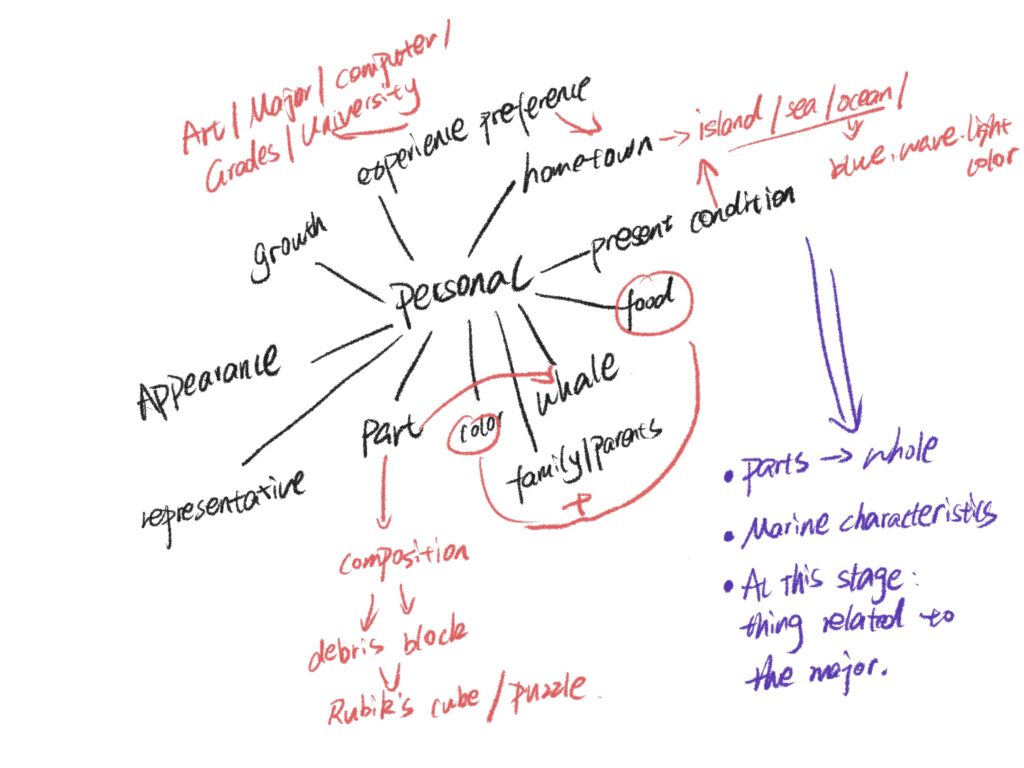 Art / Major / computer /
Grades / University
experience preference
hometown
island / sea / ocean /
blue.wave.light
color
growth
present condition
personal
food
Appearance
whale
part
color
family/parents
representative
+
composition
debris block
Rubik's cube / puzzle.
• parts → whole
• Marine characteristics
• At this stage:
thing related to
the major.